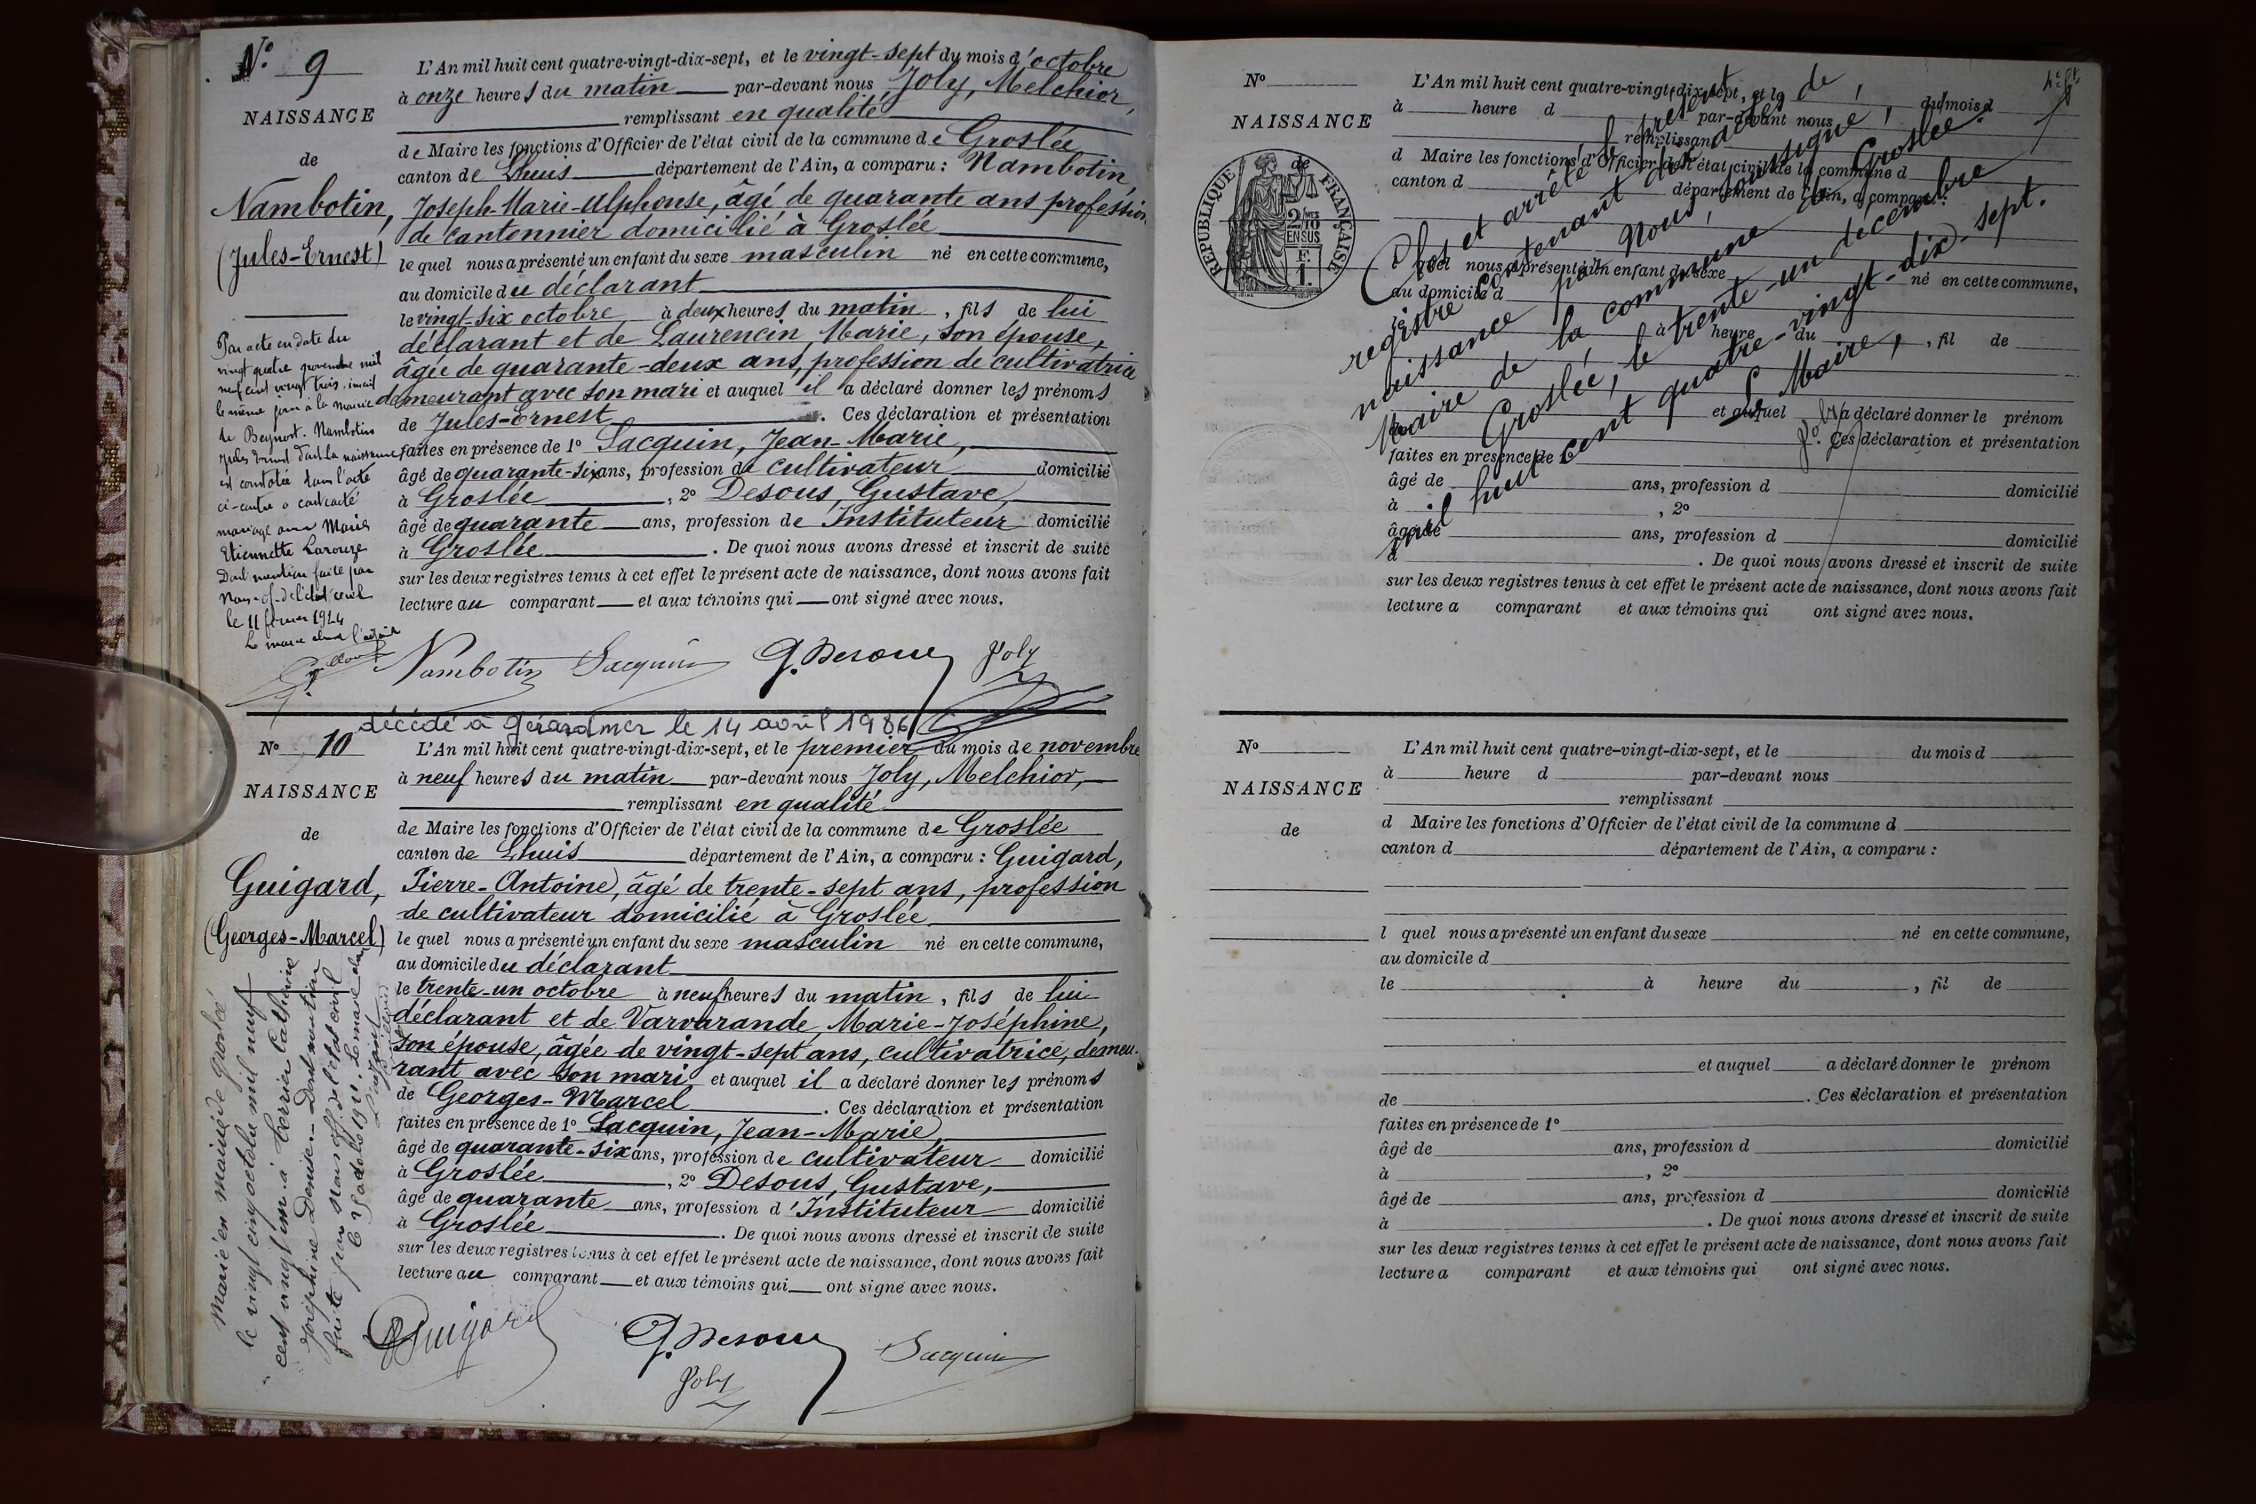 N° 9
NAISSANCE
de
Nambotin,
(Jules-Ernest)
Par acte en date du
vingt quatre novembre mil
neuf cent vingt trois, inscrit
le même jour à la mairie
de Beynost. Nambotin
Jules Ernest dont la naissance
est constatée dans l'acte
ci-contre a contracté
mariage avec Marie
Etiennette Larouze
Dont mention faite par
Nous of. de l'état civil
le 11 février 1924
Le maire
L'An mil huit cent quatre-vingt-dix-sept, et le vingt-sept du mois d'octobre
à onze heures du matin par-devant nous Joly, Melchior,
remplissant en qualité
de Maire les fonctions d'Officier de l'état civil de la commune de Groslée
canton de Lhuis département de l'Ain, a comparu : Nambotin,
Joseph-Marie-Alphonse, âgé de quarante ans profession
de cantonnier domicilié à Groslée
lequel nous a présenté un enfant du sexe masculin né en cette commune,
au domicile du déclarant
le vingt-six octobre à deux heures du matin, fils de lui
déclarant et de Laurencin, Marie, son épouse,
âgée de quarante-deux ans, profession de cultivatrice
demeurant avec son mari et auquel il a déclaré donner les prénoms
de Jules-Ernest. Ces déclaration et présentation
faites en présence de 1° Sacquin, Jean-Marie,
âgé de quarante-six ans, profession de cultivateur domicilié
à Groslée, 2° Desous, Gustave,
âgé de quarante ans, profession de Instituteur domicilié
à Groslée. De quoi nous avons dressé et inscrit de suite
sur les deux registres tenus à cet effet le présent acte de naissance, dont nous avons fait
lecture au comparant et aux témoins qui ont signé avec nous.
Nambotin Sacquin G. Desous Joly
décédé à Gérardmer le 14 avril 1986
N° 10
NAISSANCE
de
Guigard,
(Georges-Marcel)
Marié en mairie de Groslée
le vingt cinq octobre mil neuf
cent vingt un à Perrier Catherine
Joséphine Denise. Dont mention
faite par Nous off. de l'état civil
L'An mil huit cent quatre-vingt-dix-sept, et le premier du mois de novembre
à neuf heures du matin par-devant nous Joly, Melchior,
remplissant en qualité
de Maire les fonctions d'Officier de l'état civil de la commune de Groslée
canton de Lhuis département de l'Ain, a comparu : Guigard,
Pierre-Antoine, âgé de trente-sept ans, profession
de cultivateur domicilié à Groslée
lequel nous a présenté un enfant du sexe masculin né en cette commune,
au domicile du déclarant
le trente-un octobre à neuf heures du matin, fils de lui
déclarant et de Varvarande, Marie-Joséphine,
son épouse, âgée de vingt-sept ans, cultivatrice, demeu-
rant avec son mari et auquel il a déclaré donner les prénoms
de Georges-Marcel. Ces déclaration et présentation
faites en présence de 1° Sacquin, Jean-Marie,
âgé de quarante-six ans, profession de cultivateur domicilié
à Groslée, 2° Desous, Gustave,
âgé de quarante ans, profession d'Instituteur domicilié
à Groslée. De quoi nous avons dressé et inscrit de suite
sur les deux registres tenus à cet effet le présent acte de naissance, dont nous avons fait
lecture au comparant et aux témoins qui ont signé avec nous.
Guigard G. Desous Sacquin
Joly
N°
NAISSANCE
RÉPUBLIQUE FRANÇAISE
2/10 EN SUS
F. 1.
L'An mil huit cent quatre-vingt-dix-sept, et le du mois d
à heure d par-devant nous
remplissant
d Maire les fonctions d'Officier de l'état civil de la commune d
canton d département de l'Ain, a comparu :
l quel nous a présenté un enfant du sexe né en cette commune,
au domicile d
le à heure du, fil de
et auquel a déclaré donner le prénom
de. Ces déclaration et présentation
faites en présence de 1°
âgé de ans, profession d domicilié
à, 2°
âgé de ans, profession d domicilié
à. De quoi nous avons dressé et inscrit de suite
sur les deux registres tenus à cet effet le présent acte de naissance, dont nous avons fait
lecture a comparant et aux témoins qui ont signé avec nous.
Clos et arrêté le présent
registre contenant dix actes de
naissance par Nous, soussigné,
Maire de la commune de Groslée.
Groslée, le trente-un décembre
mil huit cent quatre-vingt-dix-sept.
Le Maire,
Joly
N°
NAISSANCE
de
L'An mil huit cent quatre-vingt-dix-sept, et le du mois d
à heure d par-devant nous
remplissant
d Maire les fonctions d'Officier de l'état civil de la commune d
canton d département de l'Ain, a comparu :
l quel nous a présenté un enfant du sexe né en cette commune,
au domicile d
le à heure du, fil de
et auquel a déclaré donner le prénom
de. Ces déclaration et présentation
faites en présence de 1°
âgé de ans, profession d domicilié
à, 2°
âgé de ans, profession d domicilié
à. De quoi nous avons dressé et inscrit de suite
sur les deux registres tenus à cet effet le présent acte de naissance, dont nous avons fait
lecture a comparant et aux témoins qui ont signé avec nous.